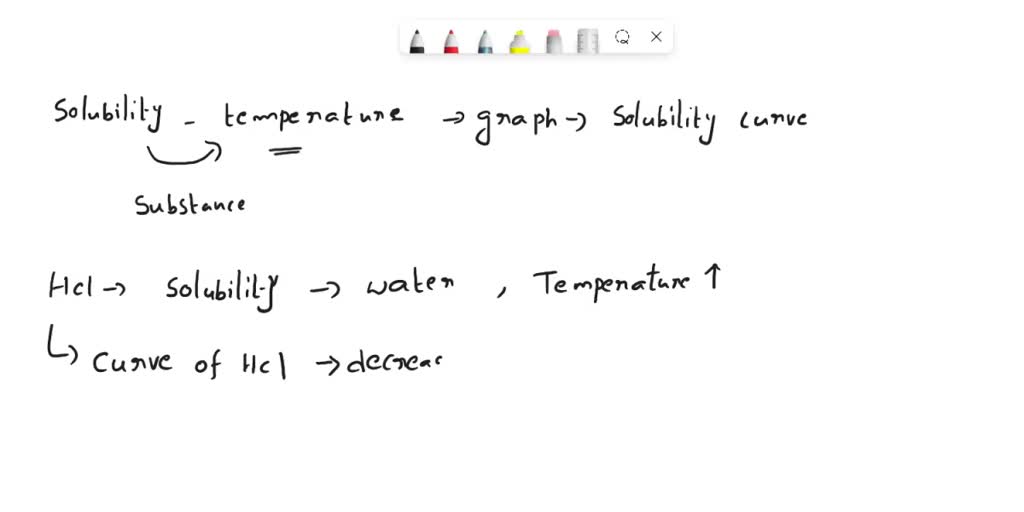 Solubility - temperature → graph → Solubility curve
Substance
Hcl → Solubility → water , Temperature ↑
↳ Curve of Hcl → decreas